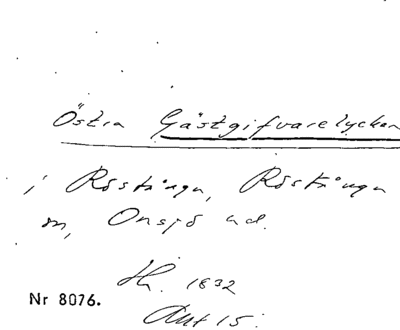 Östra Gästgifvarelyckan
i Röstånga, Röstånga
sn, Onsjö hd.
Hs. 1832
Nr 8076.
Akt 15.